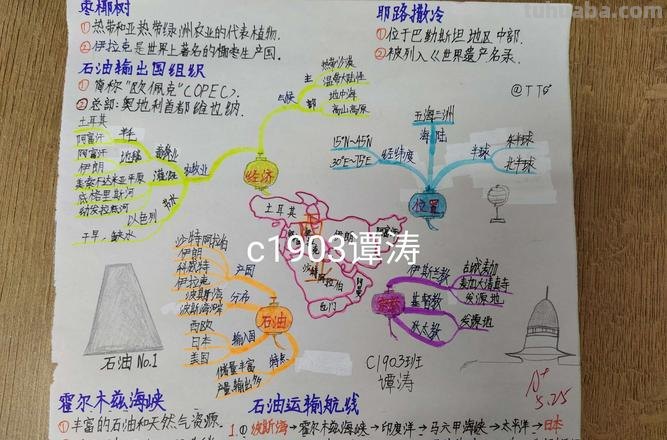 tuhuaba.com
枣椰树
①热带和亚热带绿洲农业的代表植物.
②伊拉克是世界上著名的椰枣生产国.
石油输出国组织
①简称"欧佩克"(OPEC).
②总部:奥地利首都维也纳.
耶路撒冷
①位于巴勒斯坦地区中部.
②被列入《世界遗产名录.
@TT6
土耳其
阿富汗
阿富汗
伊朗
美索不达米亚平原
底格里斯河
幼发拉底河
以色列
干旱,缺水
畜牧业
灌溉
农牧业
经济
气候
热带沙漠
温带大陆性
地中海
高山高原
五海三洲
海陆
15°N~45°N
30°E~75°E
经纬度
半球
东半球
北半球
位置
土耳其
伊朗
沙特
阿拉伯
也门
c1903谭涛
沙特阿拉伯
伊朗
科威特
伊拉克
产国
波斯湾
波斯湾畔
分布
西欧
日本
美国
输入国
储量丰富
产量输出多
特点
石油
石油No.1
伊斯兰教
古城麦加
麦加大清真寺
发源地
基督教
发源地
犹太教
C1903班
谭涛
A+
5.25
霍尔木兹海峡
①丰富的石油和天然气资源.
石油运输航线
1.①波斯湾→霍尔木兹海峡→印度洋→马六甲海峡→太平洋→日本